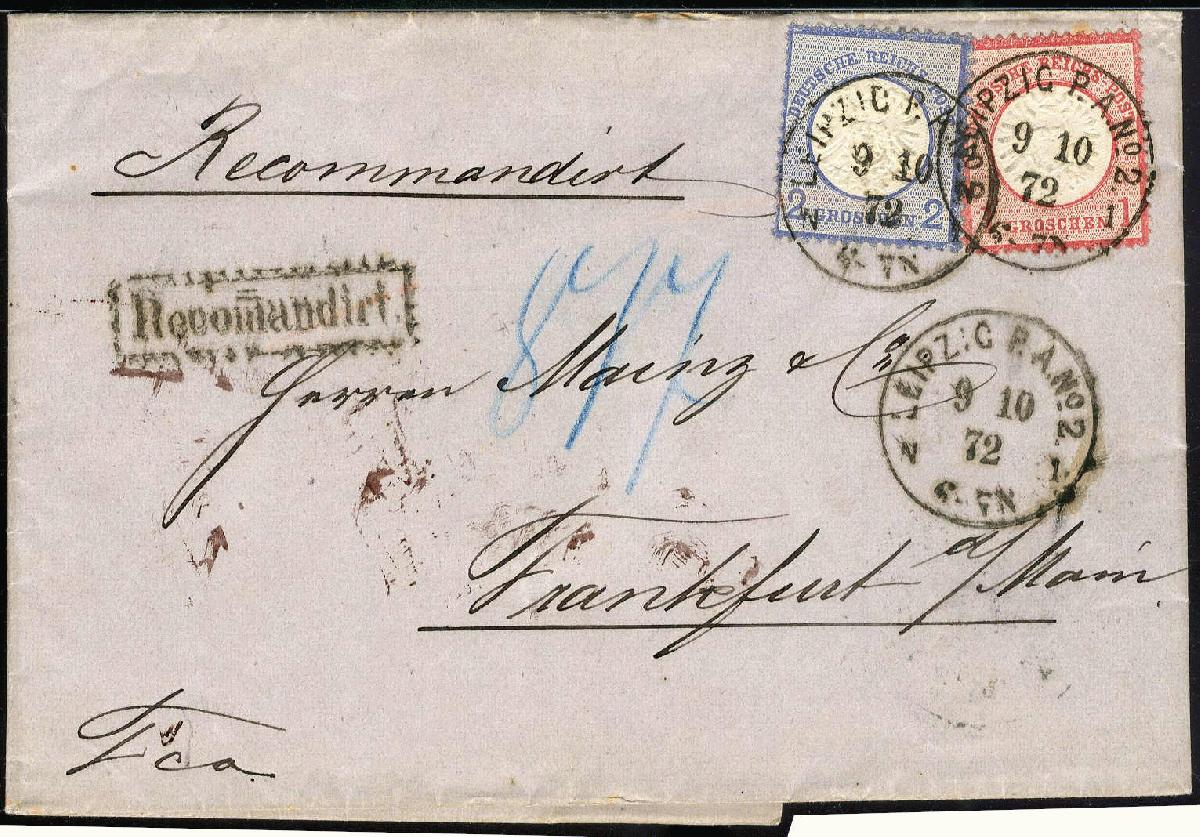 Recommandirt
DEUTSCHE REICHS-POST
2 GROSCHEN 2
REICHS-POST
GROSCHEN 1
LEIPZIG P.A.No.2.
9 10
72
LEIPZIG P.A.No.2.
9 10
72
Recommandirt.
877
Herren Mainz & Co
LEIPZIG P.A.No.2.
9 10
72
Frankfurt a/Main
Fco.